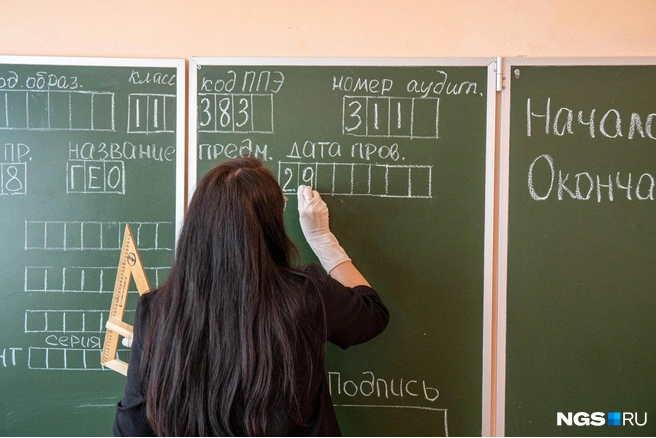 од образ. класс код ППЭ номер аудит.
11 383 311
Начало
пр. название предм. дата пров.
8 ГЕО 29
Оконча
серия
нт
Подпись
NGS RU